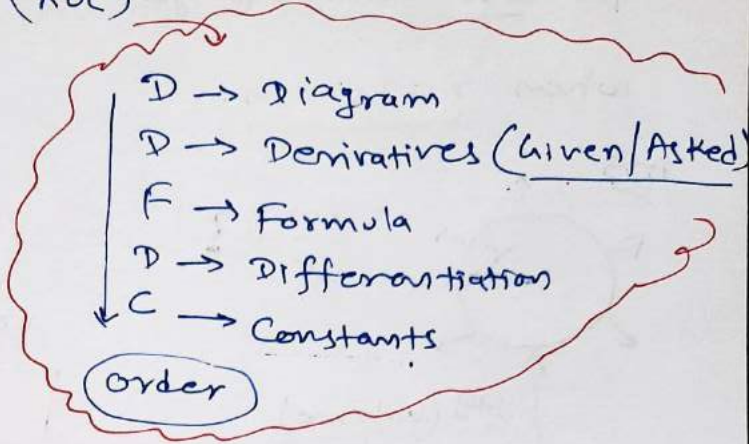 D → Diagram
D → Derivatives (Given/Asked)
F → Formula
D → Differantiation
C → Constants
order